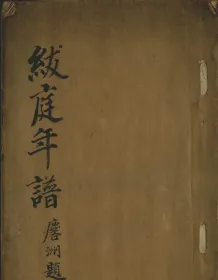 紱庭年譜
洲題